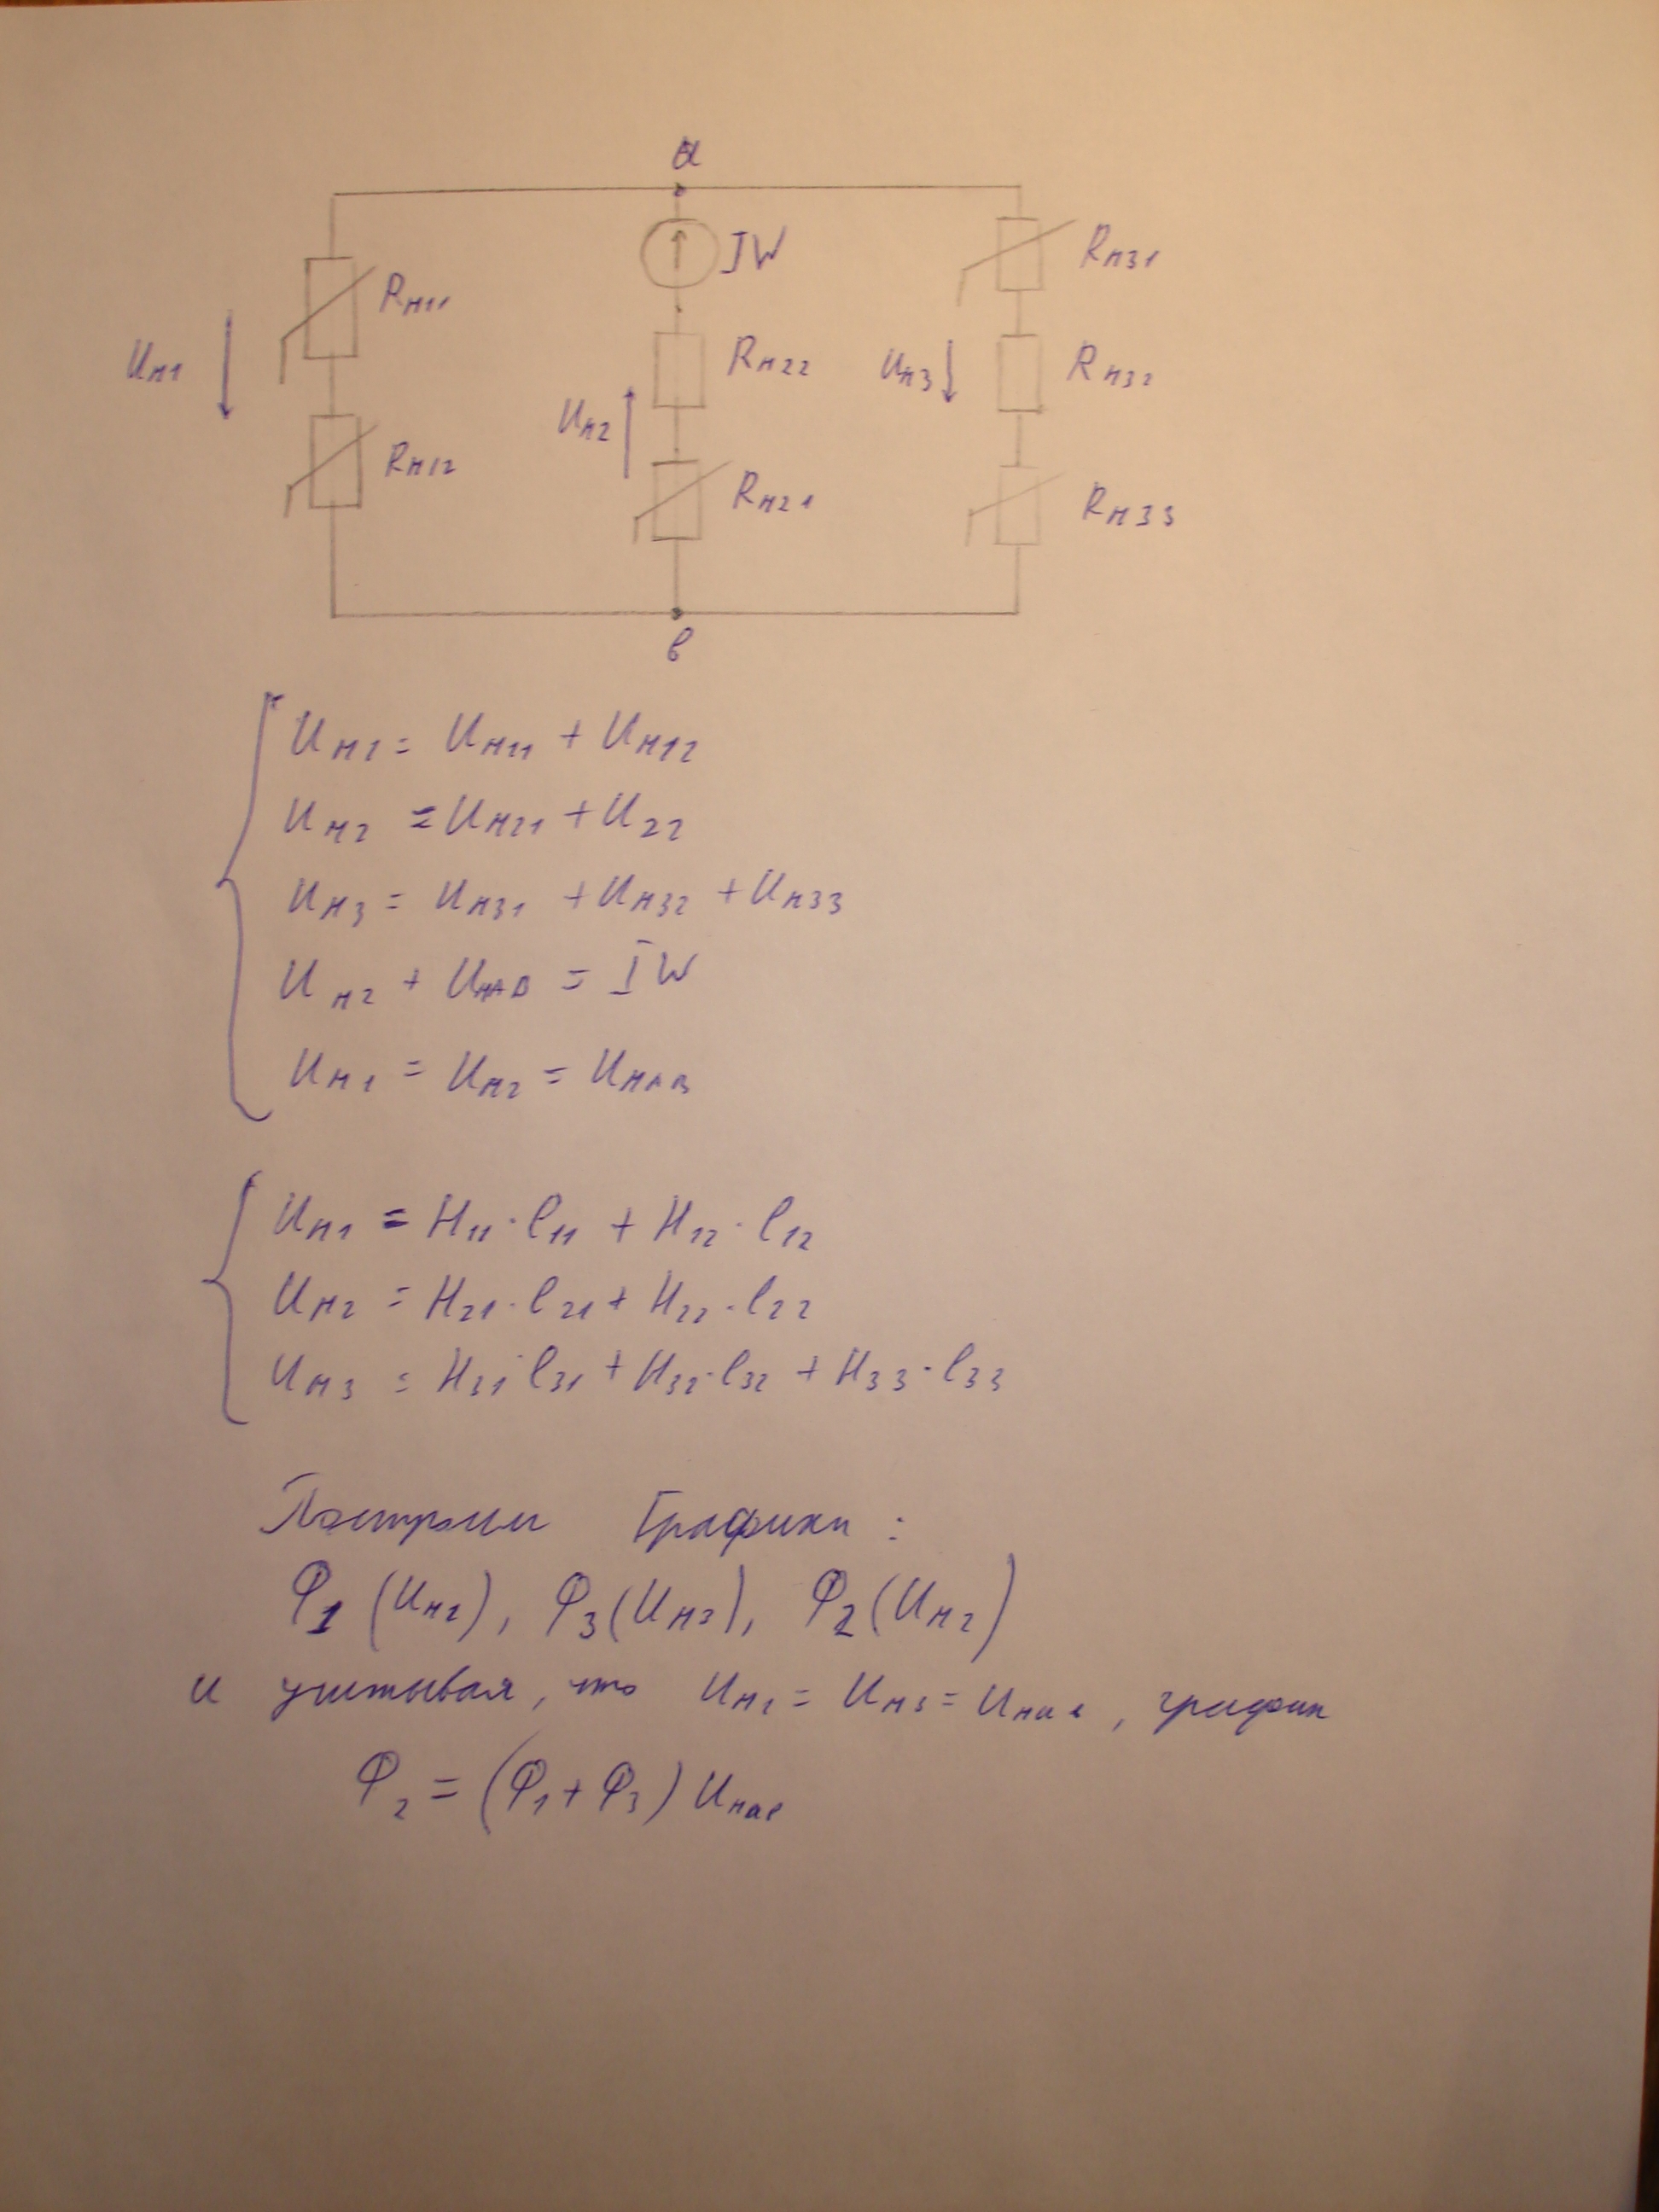 a
IW
Rм31
Rм11
Uм1
Rм22
Uм3
Rм32
Uм2
Rм12
Rм21
Rм33
в
Uм1 = Uм11 + Uм12
Uм2 = Uм21 + U22
Uм3 = Uм31 + Uм32 + Uм33
Uм2 + UмAB = IW
Uм1 = Uм2 = UмAB
Uм1 = H11·l11 + H12·l12
Uм2 = H21·l21 + H22·l22
Uм3 = H31·l31 + H32·l32 + H33·l33
Построим Графики :
Ф1 (Uм1), Ф3 (Uм3), Ф2 (Uм2)
и учитывая, что Uм1 = Uм3 = Uмaв, график
Ф2 = (Ф1 + Ф3) Uмaв